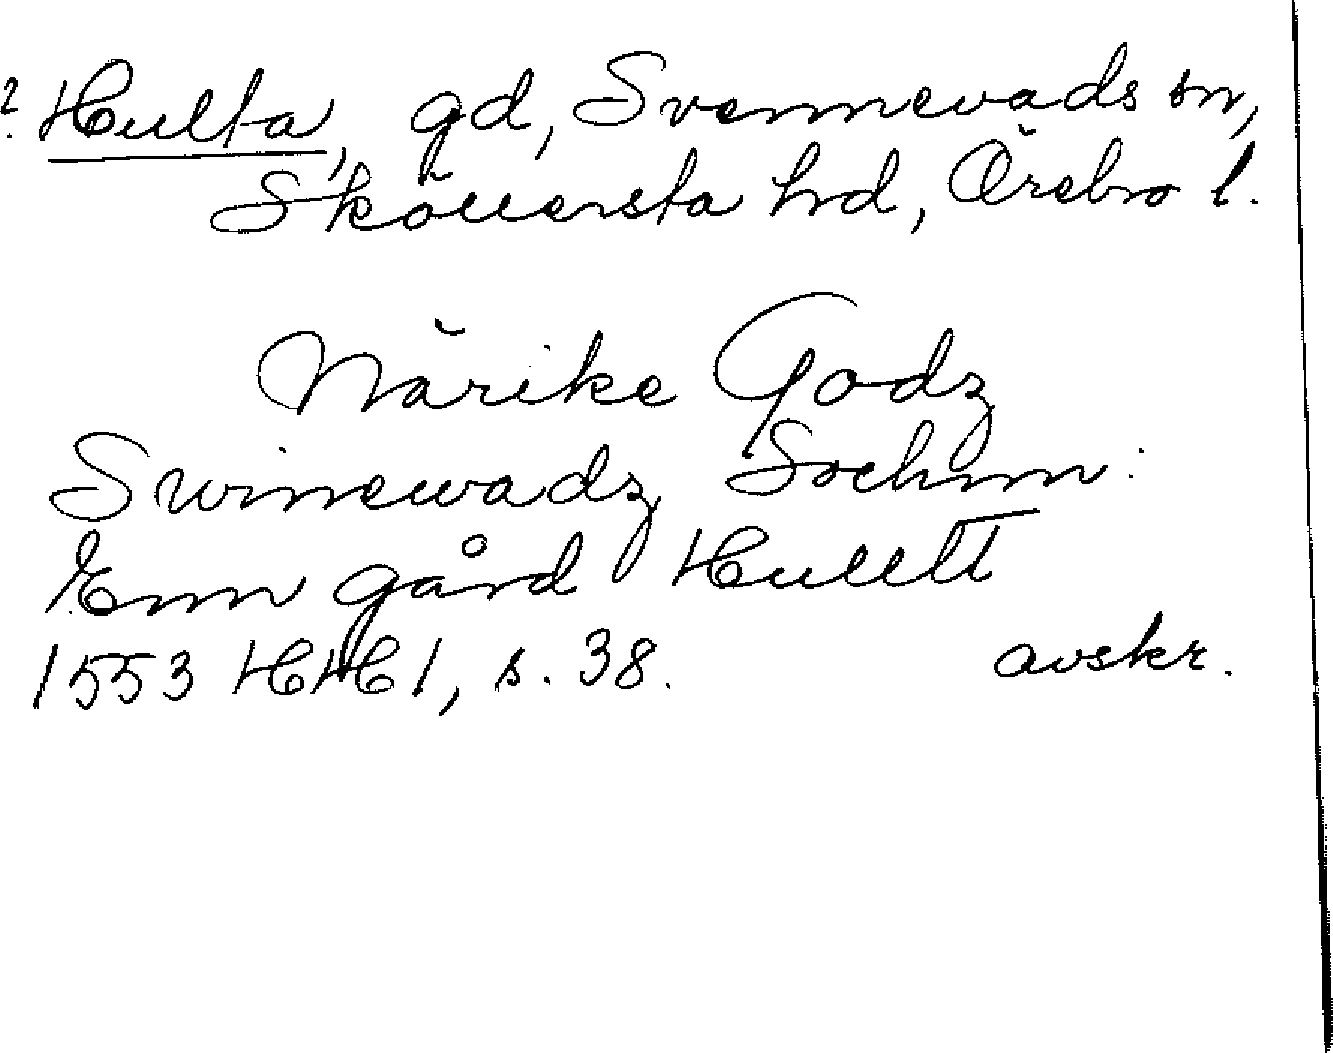 ? Hulta, gd, Svennevads sn,
Sköllersta hd, Örebro l.
Närike Godz
Swinewadz Sochnn:
Enn gård Hullt
1553 HH 1, s. 38. avskr.